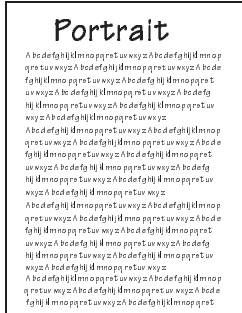 Portrait
A bcdefghijklmnopqrstuvwxyz A bcdefghijklmnop
qrstuvwxyz A bcdefghijklmnopqrstuvwxyz A bcde
fghijklmnopqrstuvwxyz A bcdefghijklmnopqrst
uvwxyz A bcdefghijklmnopqrstuvwxyz A bcdefg
hijklmnopqrstuvwxyz A bcdefghijklmnopqrstuv
wxyz A bcdefghijklmnopqrstuvwxyz
A bcdefghijklmnopqrstuvwxyz A bcdefghijklmnop
qrstuvwxyz A bcdefghijklmnopqrstuvwxyz A bcde
fghijklmnopqrstuvwxyz A bcdefghijklmnopqrst
uvwxyz A bcdefghijklmnopqrstuvwxyz A bcdefg
hijklmnopqrstuvwxyz A bcdefghijklmnopqrstuv
wxyz A bcdefghijklmnopqrstuvwxyz
A bcdefghijklmnopqrstuvwxyz A bcdefghijklmnop
qrstuvwxyz A bcdefghijklmnopqrstuvwxyz A bcde
fghijklmnopqrstuvwxyz A bcdefghijklmnopqrst
uvwxyz A bcdefghijklmnopqrstuvwxyz A bcdefg
hijklmnopqrstuvwxyz A bcdefghijklmnopqrstuv
wxyz A bcdefghijklmnopqrstuvwxyz
A bcdefghijklmnopqrstuvwxyz A bcdefghijklmnop
qrstuvwxyz A bcdefghijklmnopqrstuvwxyz A bcde
fghijklmnopqrstuvwxyz A bcdefghijklmnopqrst